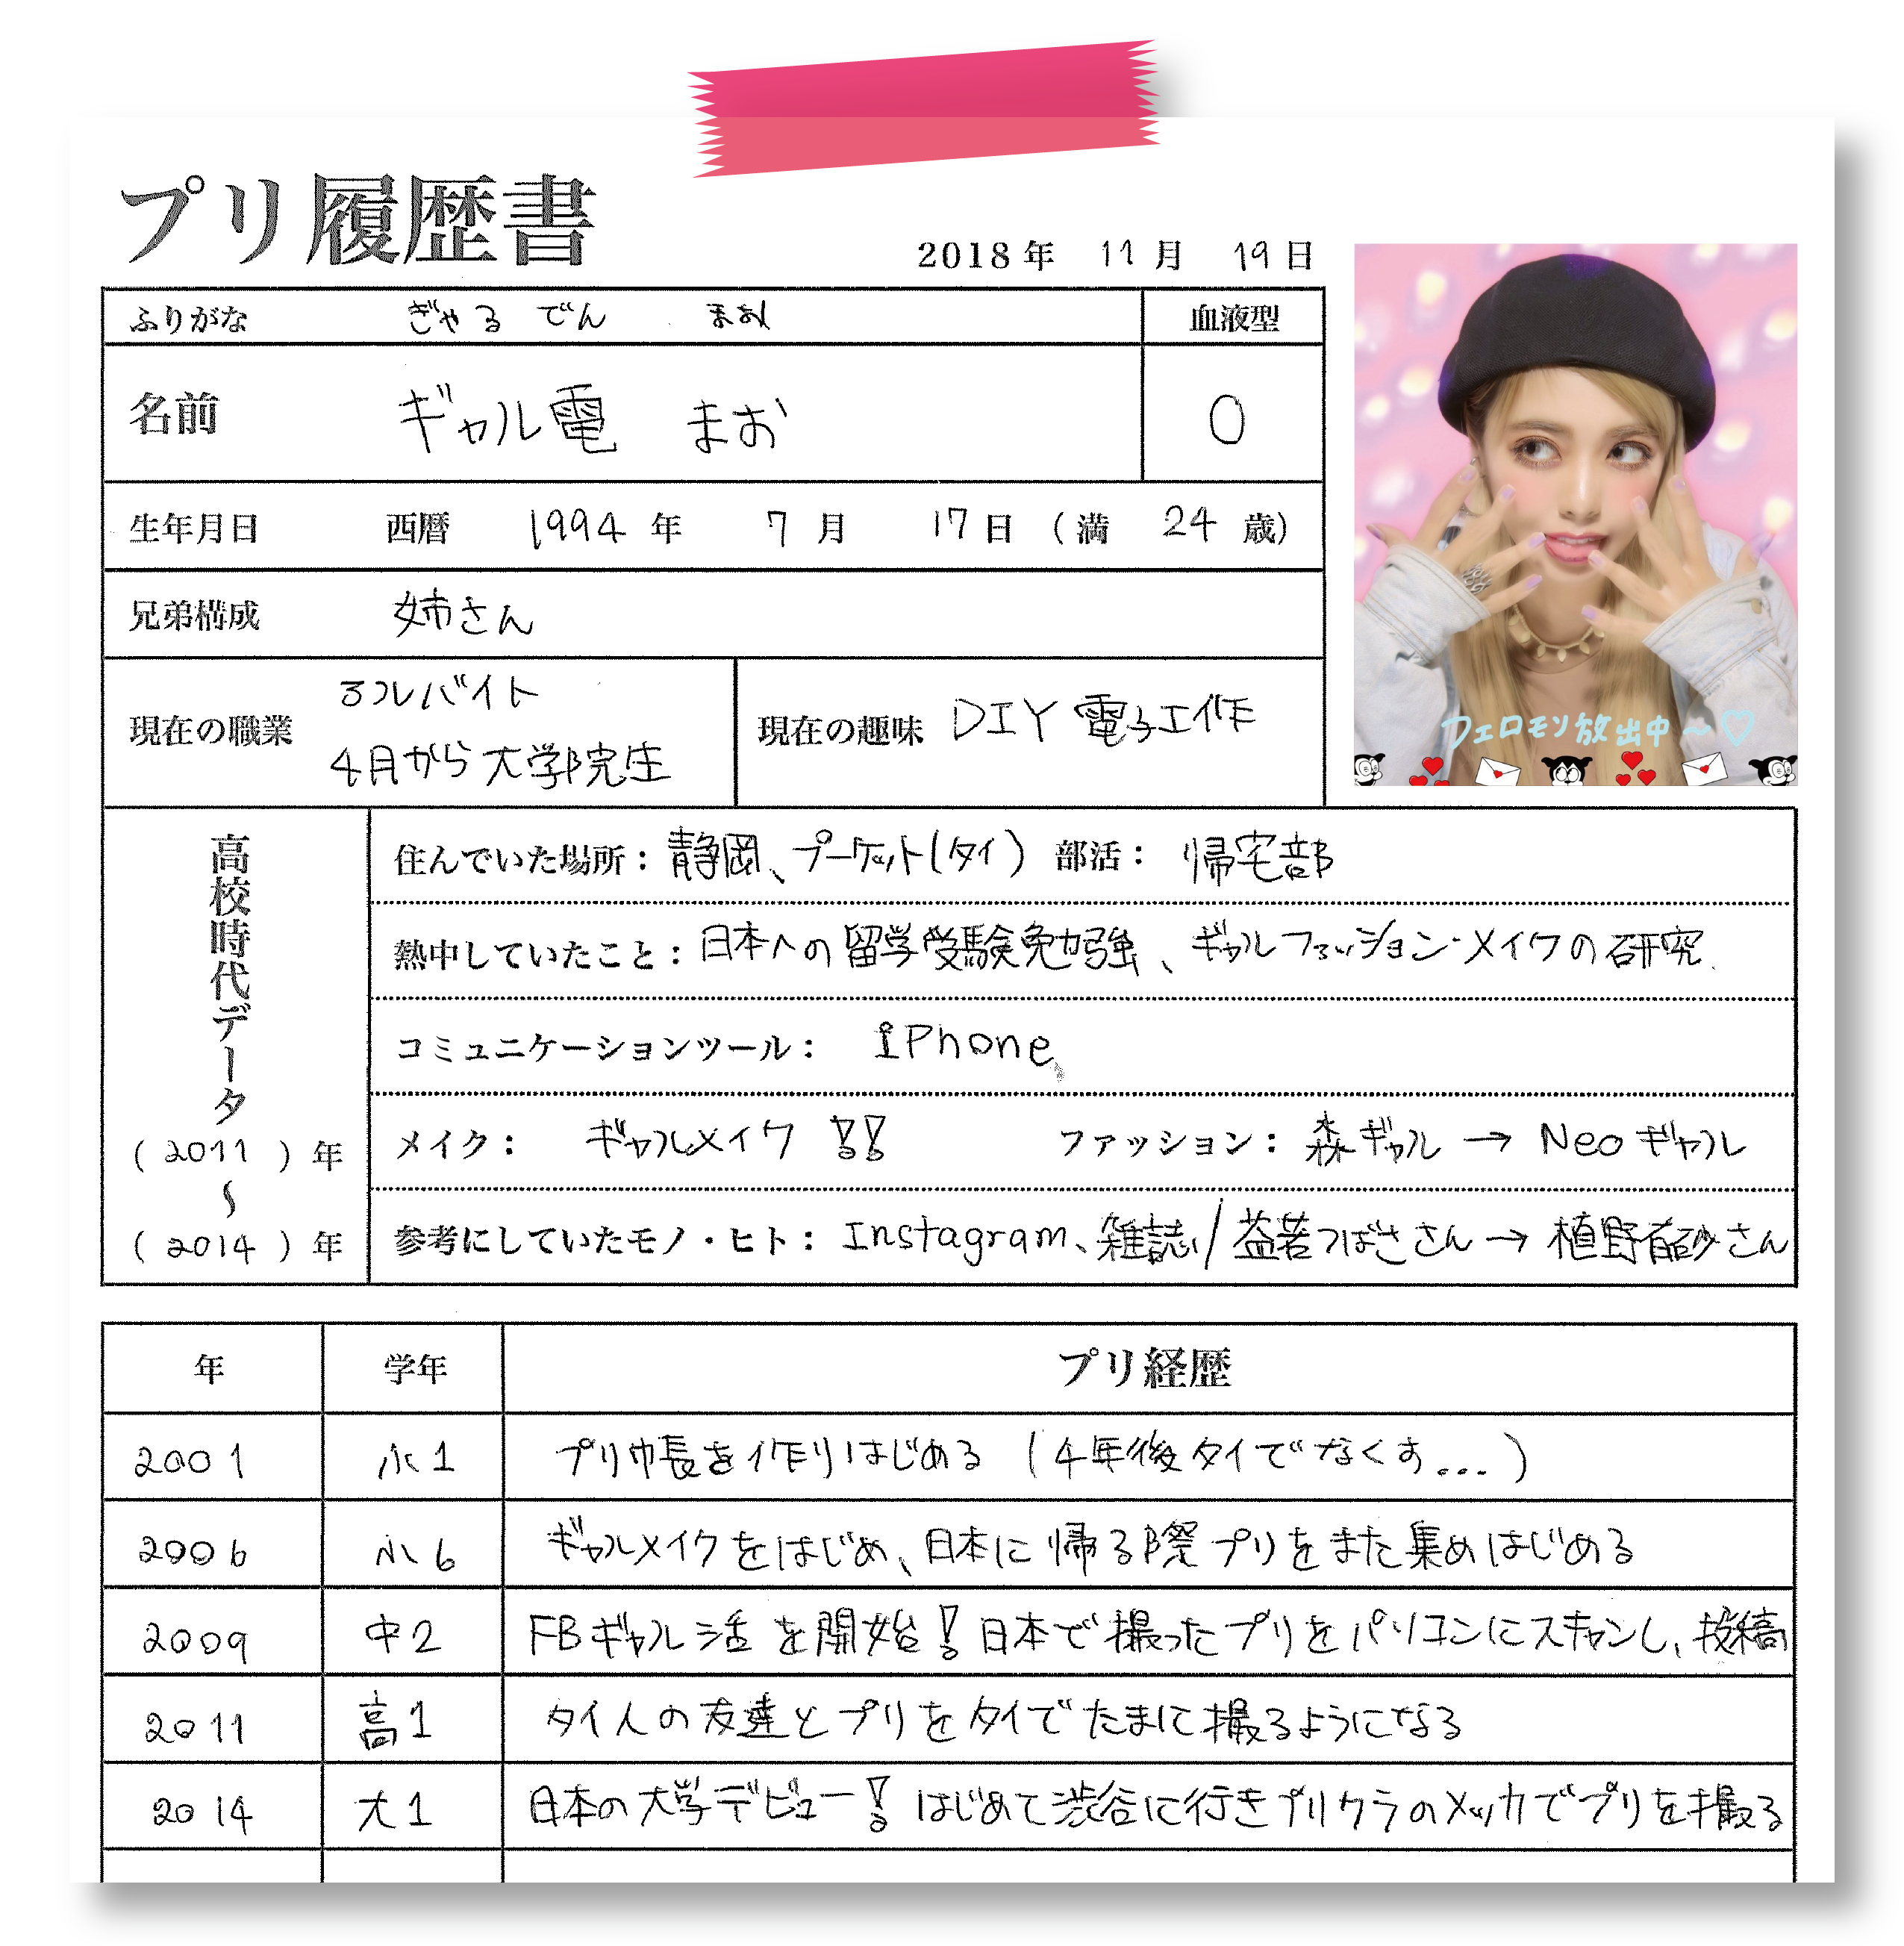 プリ履歴書
2018年 11月 19日
ふりがな ぎゃる でん まお 血液型
名前 ギャル電 まお O
生年月日 西暦 1994年 7月 17日 (満 24歳)
兄弟構成 姉さん
現在の職業
フルバイト
4月から大学院生
現在の趣味 DIY電子工作
フェロモン放出中～♡
高校時代データ
(2011)年
～
(2014)年
住んでいた場所：静岡、プーケット(タイ) 部活：帰宅部
熱中していたこと：日本への留学受験勉強、ギャルファッション・メイクの研究
コミュニケーションツール： iPhone
メイク： ギャルメイク!! ファッション：森ギャル→Neoギャル
参考にしていたモノ・ヒト：Instagram、雑誌/益若つばささん→植野有砂さん
年 学年 プリ経歴
2001 小1 プリ帳を作りはじめる (4年後タイでなくす...)
2006 小6 ギャルメイクをはじめ、日本に帰る際プリをまた集めはじめる
2009 中2 FBギャル活を開始!日本で撮ったプリをパソコンにスキャンし、投稿
2011 高1 タイ人の友達とプリをタイでたまに撮るようになる
2014 大1 日本の大学デビュー!はじめて渋谷に行きプリクラのメッカでプリを撮る